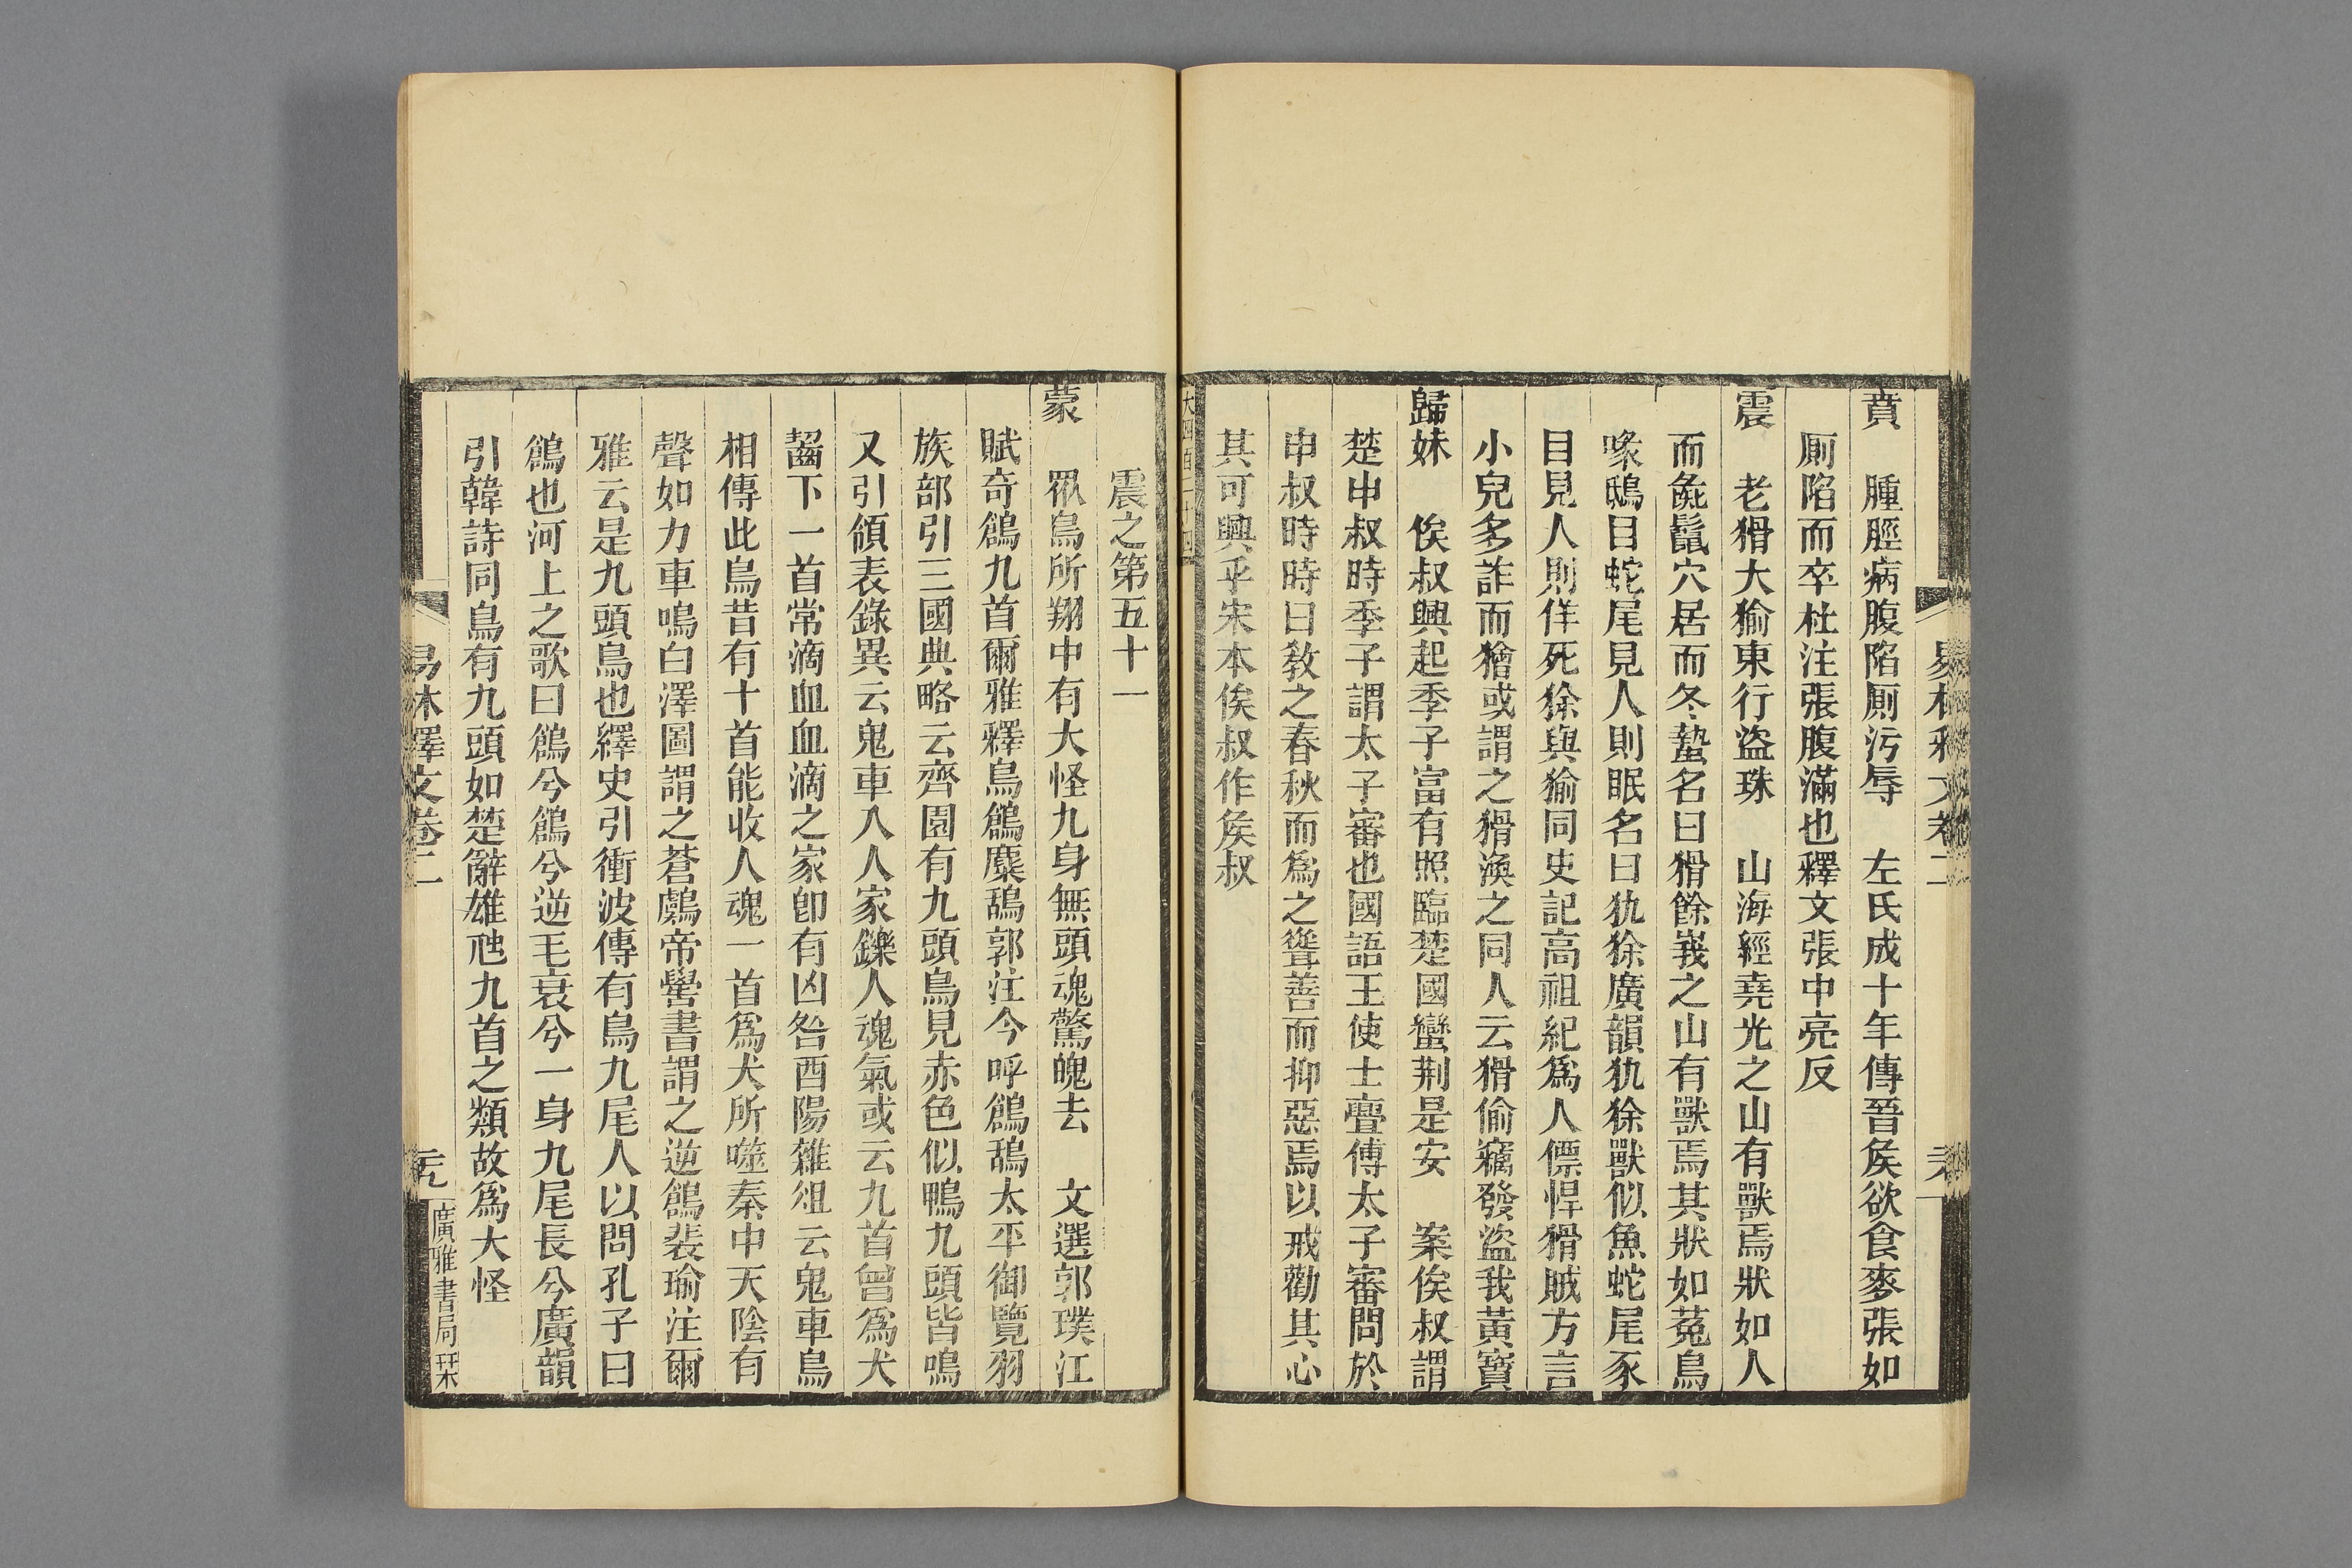 易林釋文卷二
賁　腫脛病腹陷厠污辱　左氏成十年傳晉矦欲食麥張如
厠陷而卒杜注張腹滿也釋文張中亮反
震　老猾大猾東行盜珠　山海經堯光之山有獸焉狀如人
而彘鬣穴居而冬蟄名曰猾餘峩之山有獸焉其狀如菟鳥
喙鴟目蛇尾見人則眠名曰犰狳廣韻犰狳獸似魚蛇尾豕
目見人則佯死狳與㺄同史記高祖紀爲人僄悍猾賊方言
小兒多詐而獪或謂之猾渙之同人云猾偷竊發盜我黃寶
歸妹　俟叔興起季子富有照臨楚國蠻荆是安　案俟叔謂
楚申叔時季子謂太子審也國語王使士亹傅太子審問於
申叔時時曰敎之春秋而爲之聳善而抑惡焉以戒勸其心
其可興乎宋本俟叔作矦叔
大四百二十四
震之第五十一
蒙　眾鳥所翔中有大怪九身無頭魂驚魄去　文選郭璞江
賦奇鶬九首爾雅釋鳥鶬麋鴰郭注今呼鶬鴰太平御覽羽
族部引三國典略云齊園有九頭鳥見赤色似鴨九頭皆鳴
又引領表錄異云鬼車入人家鑠人魂氣或云九首曾爲犬
齧下一首常滴血血滴之家卽有凶咎酉陽雜俎云鬼車鳥
相傳此鳥昔有十首能收人魂一首爲犬所噬秦中天陰有
聲如力車鳴白澤圖謂之蒼鸆帝嚳書謂之逆鶬裴瑜注爾
雅云是九頭鳥也繹史引衝波傳有鳥九尾人以問孔子曰
鶬也河上之歌曰鶬兮鶬兮逆毛衰兮一身九尾長兮廣韻
引韓詩同鳥有九頭如楚辭雄虺九首之類故爲大怪
易林釋文卷二
元
廣雅書局栞